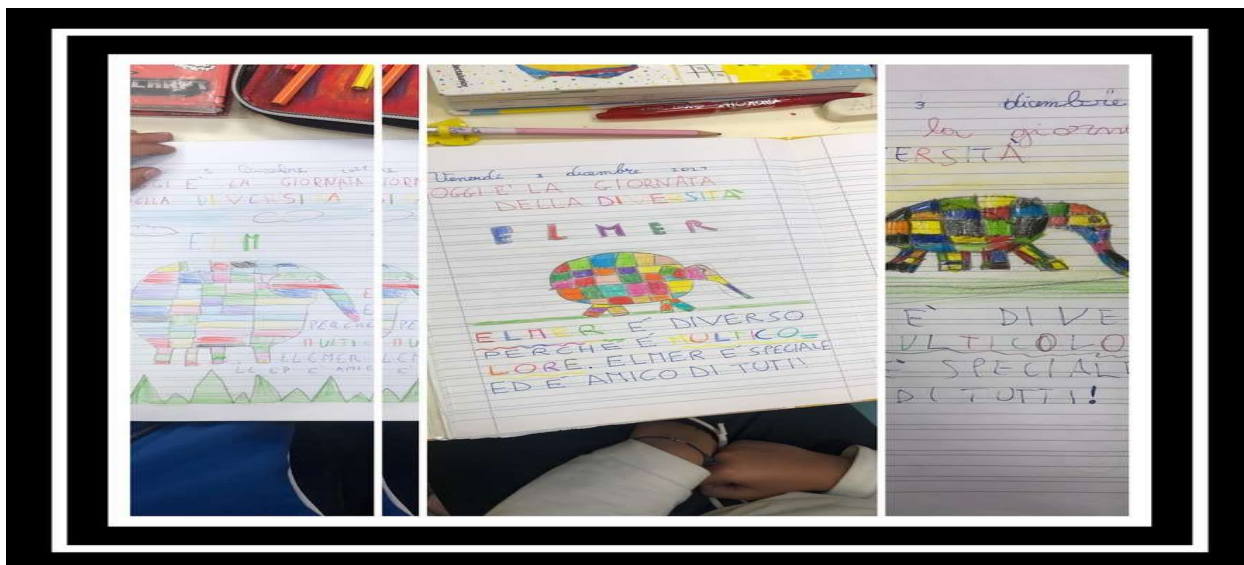 3 Dicembre
GI E' LA GIORNATA
ELLA DIVERSITA
EL M
E
PERCHE
MULTI
ELEMER
ED E' AMIC
IORN
PE
MUL
Venerdì 3 dicembre
OGGI E' LA GIORNATA
DELLA DIVERSITA'
ELMER
ELMER E' DIVERSO
PERCHE E' MULTICO=
LORE. ELMER E' SPECIALE
ED E' AMICO DI TUTTI
3 dicembre
la giorn
ERSITÀ
E' DIVE
ULTICOLO
E' SPECIAL
DI TUTTI!